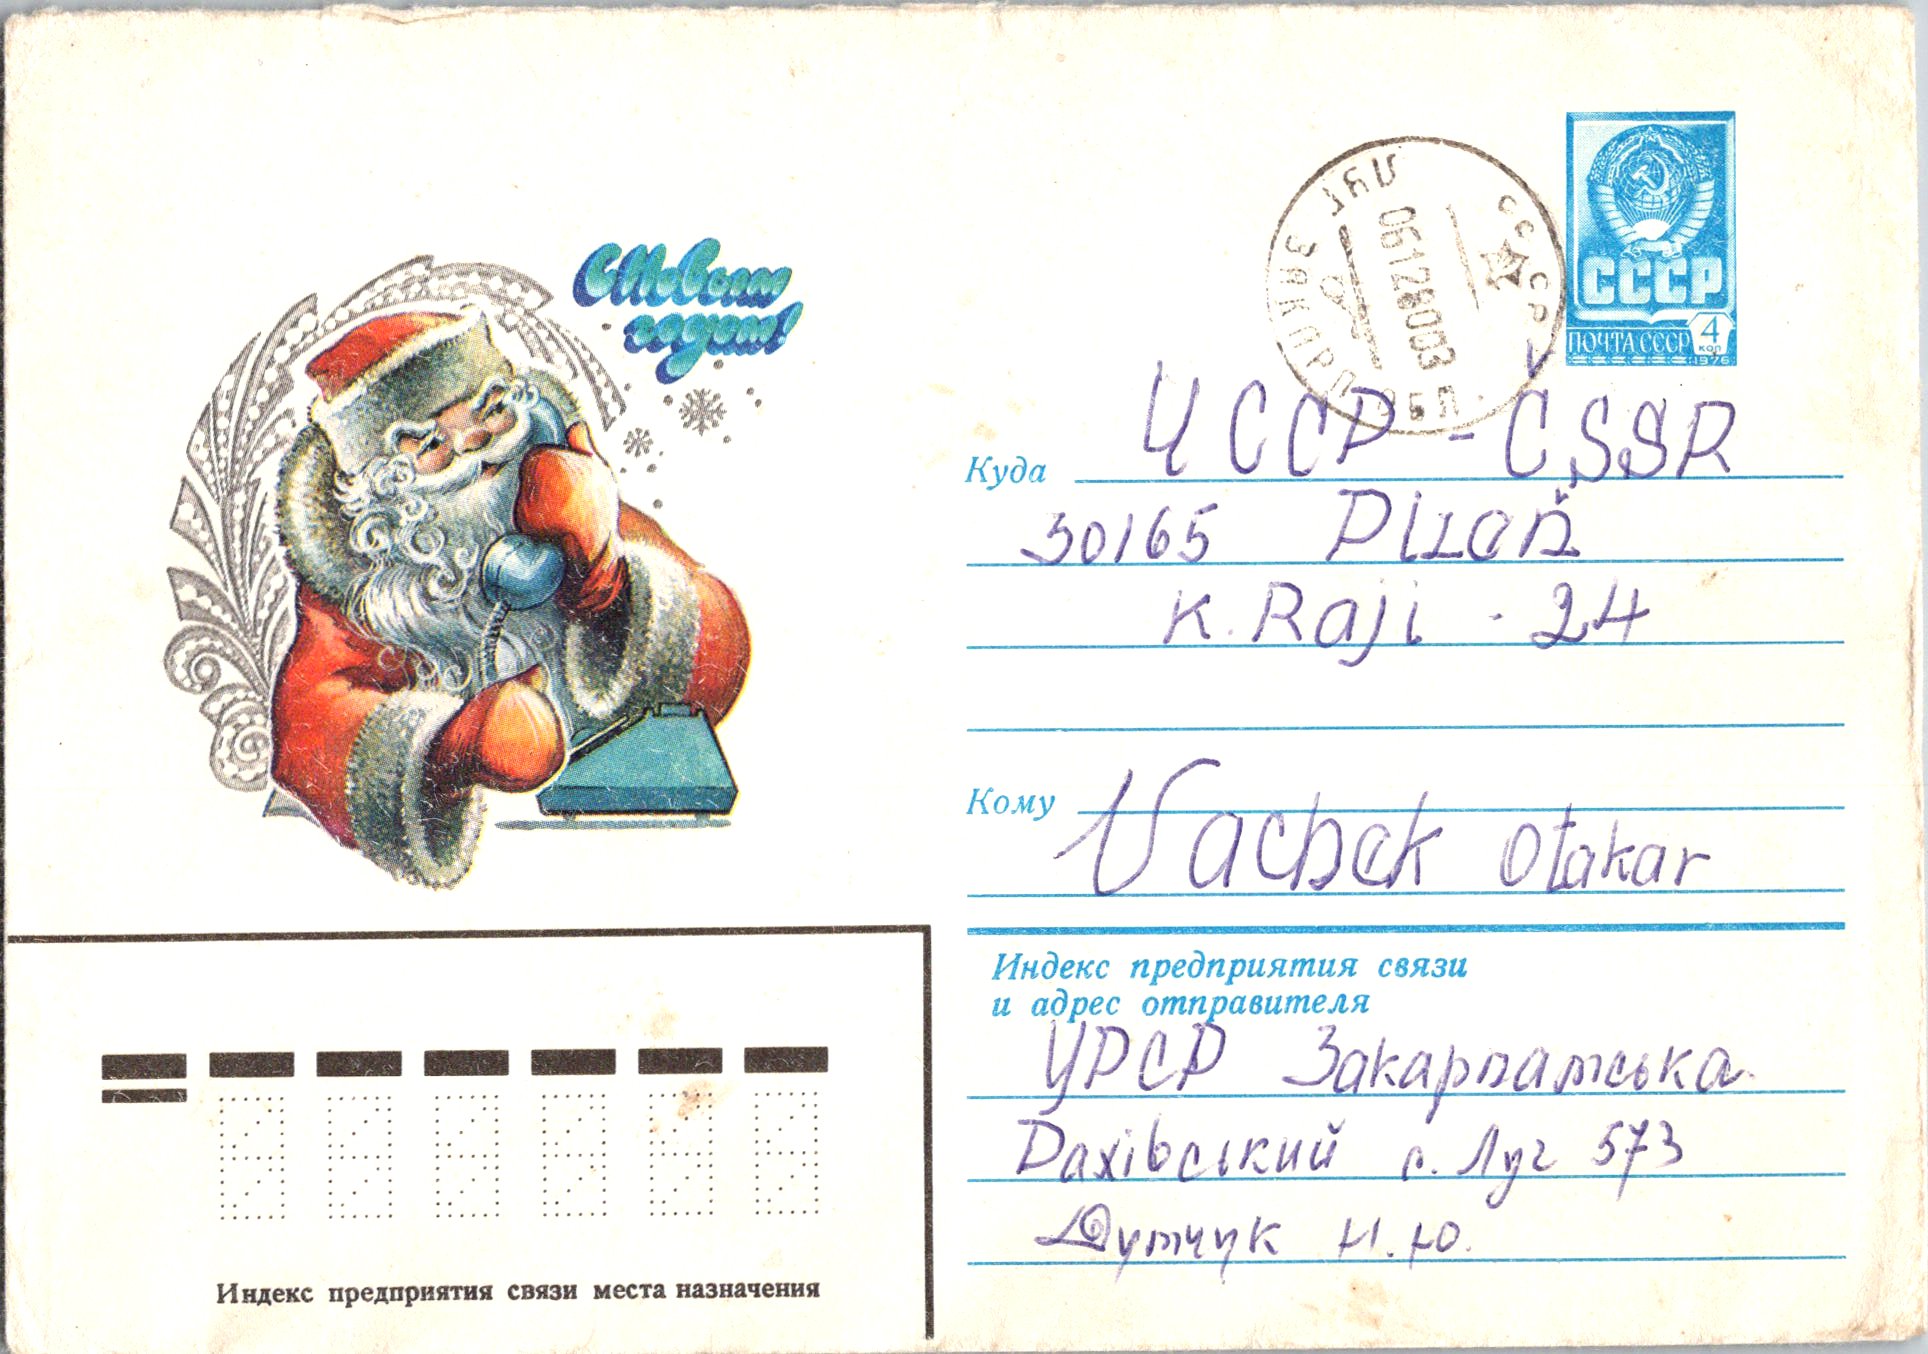 С Новым
годом!
СССР
ПОЧТА СССР 4
коп
1976
ЛУГ
СССР
0612 80
Куда ЧССР - ČSSR
30165 Plzeň
K. Raji - 24
Кому Vachek Otakar
Индекс предприятия связи
и адрес отправителя
УРСР Закарпатська
Рахівський с. Луг 573
Думчук Н. Ю.
Индекс предприятия связи места назначения